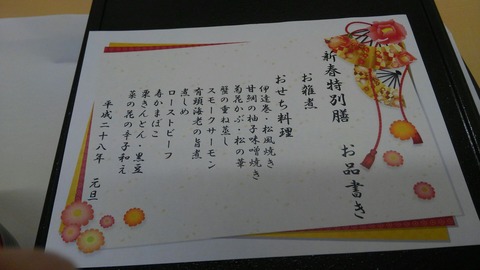 新春特別膳 お品書き
お雑煮
おせち料理
伊達巻・松風焼き
甘鯛の柚子味噌焼き
菊花かぶ・松の華
蟹の重ね蒸し
スモークサーモン
有頭海老の旨煮
煮しめ
ローストビーフ
寿かまぼこ
栗きんとん・黒豆
菜の花の辛子和え
平成二十八年 元旦